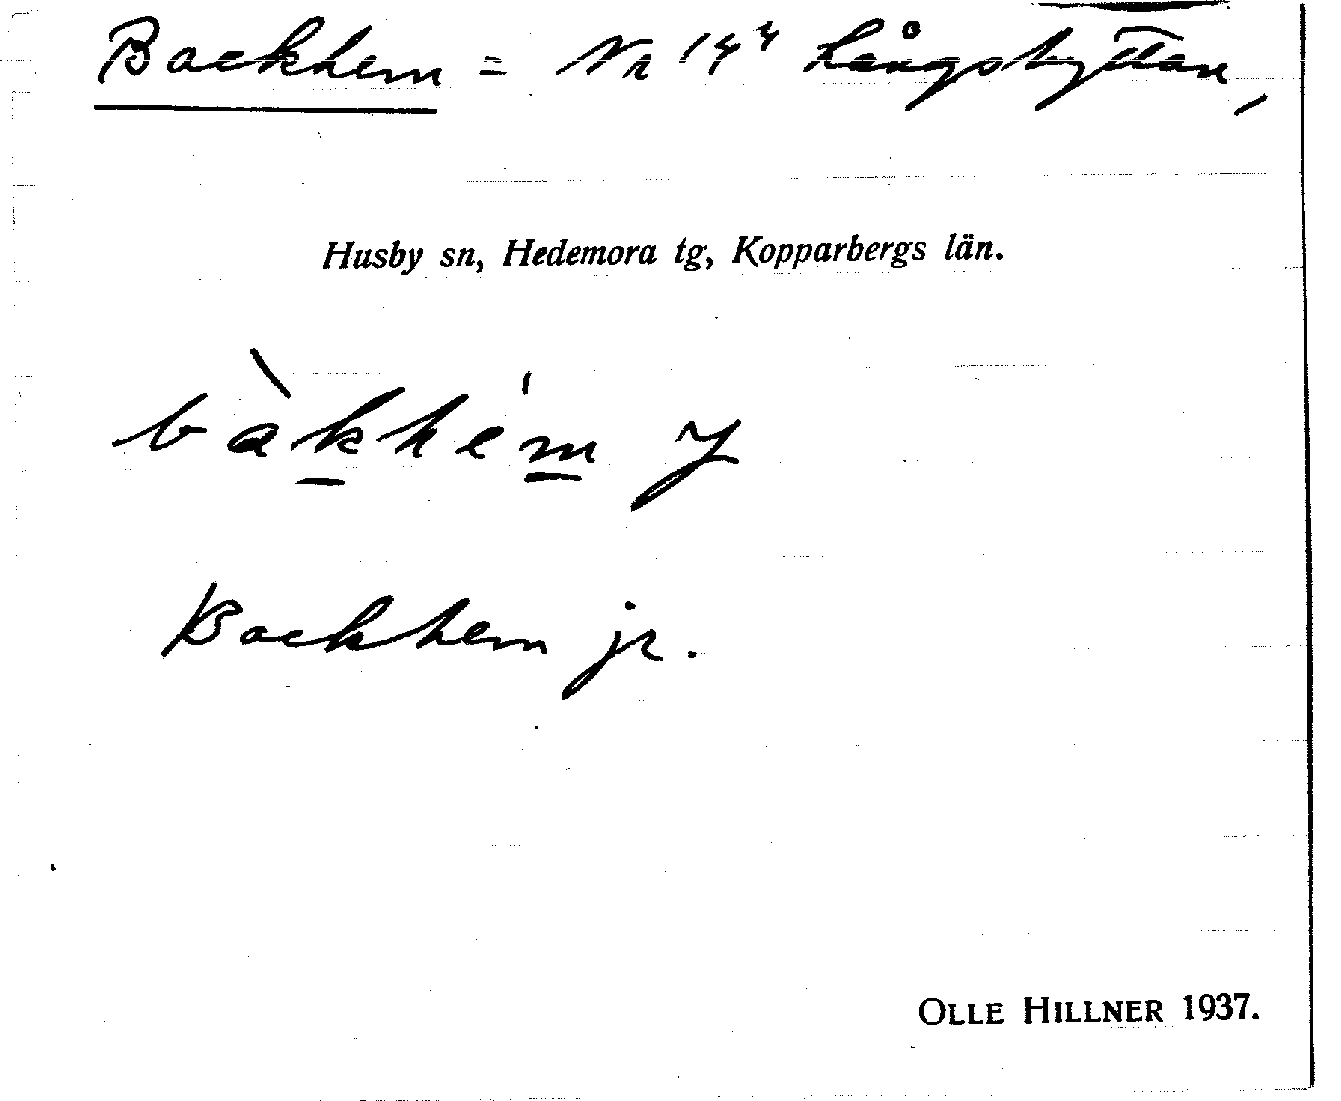 Backhem = Nr 14⁴ Långshyttan,
Husby sn, Hedemora tg, Kopparbergs län.
bàkhém
Backhem jr.
OLLE HILLNER 1937.